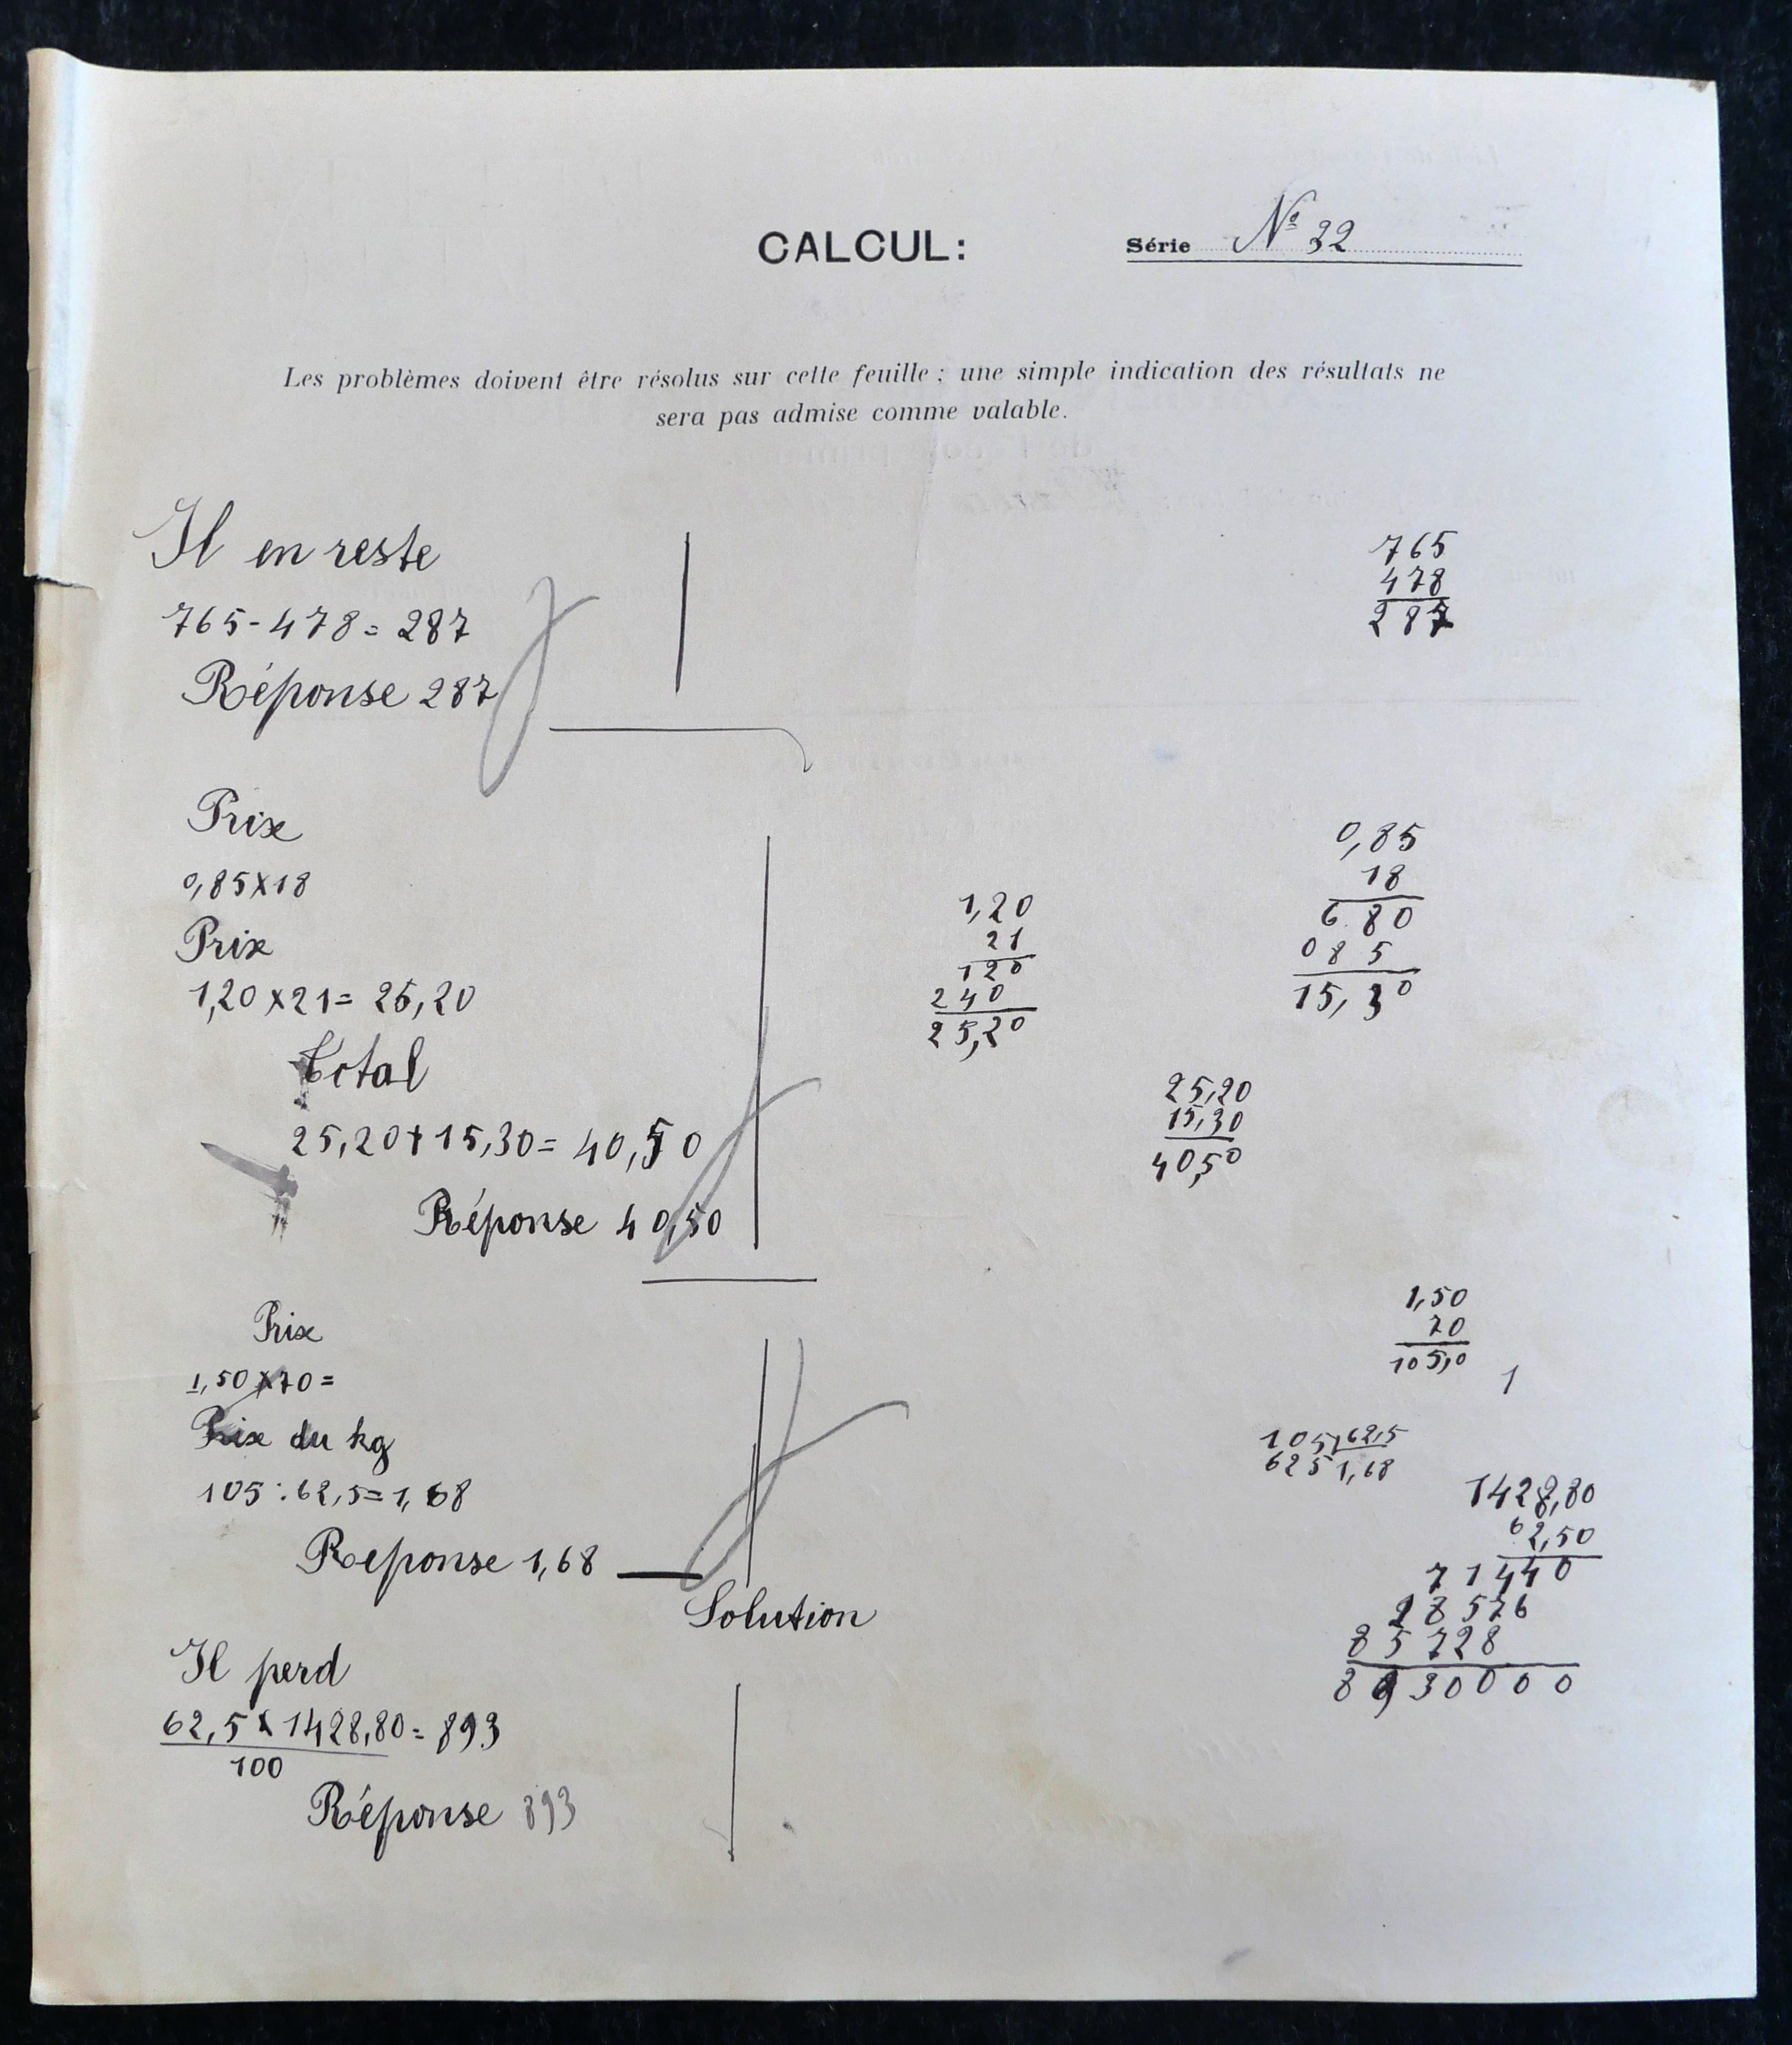 CALCUL:
Série Nº 32
Les problèmes doivent être résolus sur cette feuille ; une simple indication des résultats ne
sera pas admise comme valable.
Il en reste
765 - 478 = 287
Réponse 287
765
478
287
Prix
0,85 x 18
Prix
1,20 x 21 = 25,20
Total
25,20 + 15,30 = 40,50
Réponse 40,50
1,20
21
120
240
25,20
0,85
18
6 80
08 5
15,30
25,20
15,30
40,50
Prix
1,50 x 70 =
Prix du kg
105 : 62,5 = 1,68
Reponse 1,68
1,50
70
105,0
1
105 62,5
625 1,68
Solution
Il perd
62,5 x 1428,80 = 893
100
Réponse 893
1428,80
62,50
71440
28576
85728
8930000